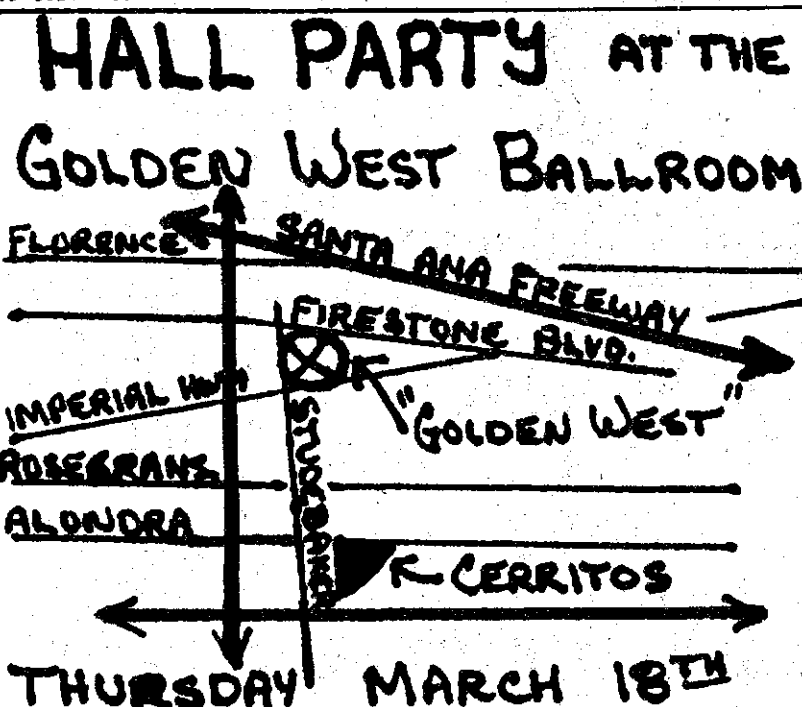 HALL PARTY AT THE
GOLDEN WEST BALLROOM
FLORENCE
SANTA ANA FREEWAY
FIRESTONE BLVD.
IMPERIAL HWY
"GOLDEN WEST"
STUDEBAKER
ROSECRANS
ALONDRA
CERRITOS
THURSDAY MARCH 18TH